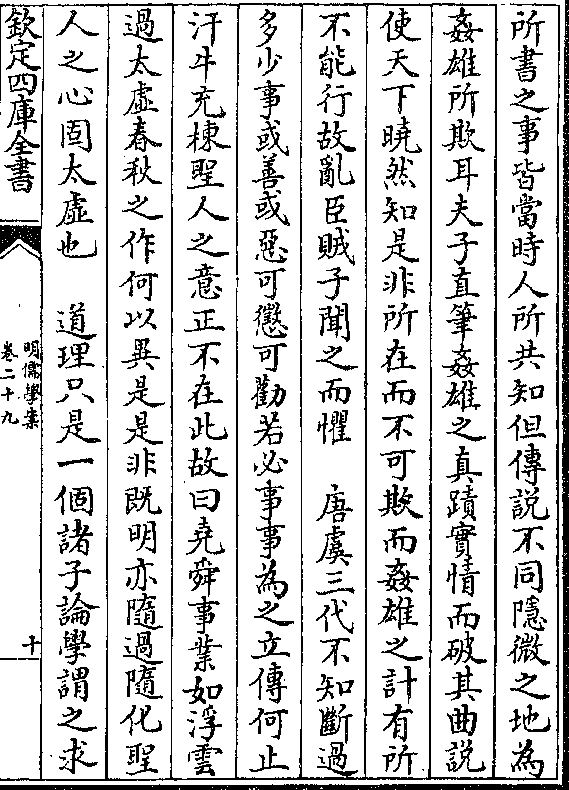 所書之事皆當時人所共知但傳說不同隱微之地為
姦雄所欺耳夫子直筆姦雄之真蹟實情而破其曲說
使天下曉然知是非所在而不可欺而姦雄之計有所
不能行故亂臣賊子聞之而懼　唐虞三代不知斷過
多少事或善或惡可懲可勸若必事事為之立傳何止
汗牛充棟聖人之意正不在此故曰堯舜事業如浮雲
過太虛春秋之作何以異是是非既明亦隨過隨化聖
人之心固太虛也　道理只是一個諸子論學謂之求
欽定四庫全書
明儒學案
卷二十九
十